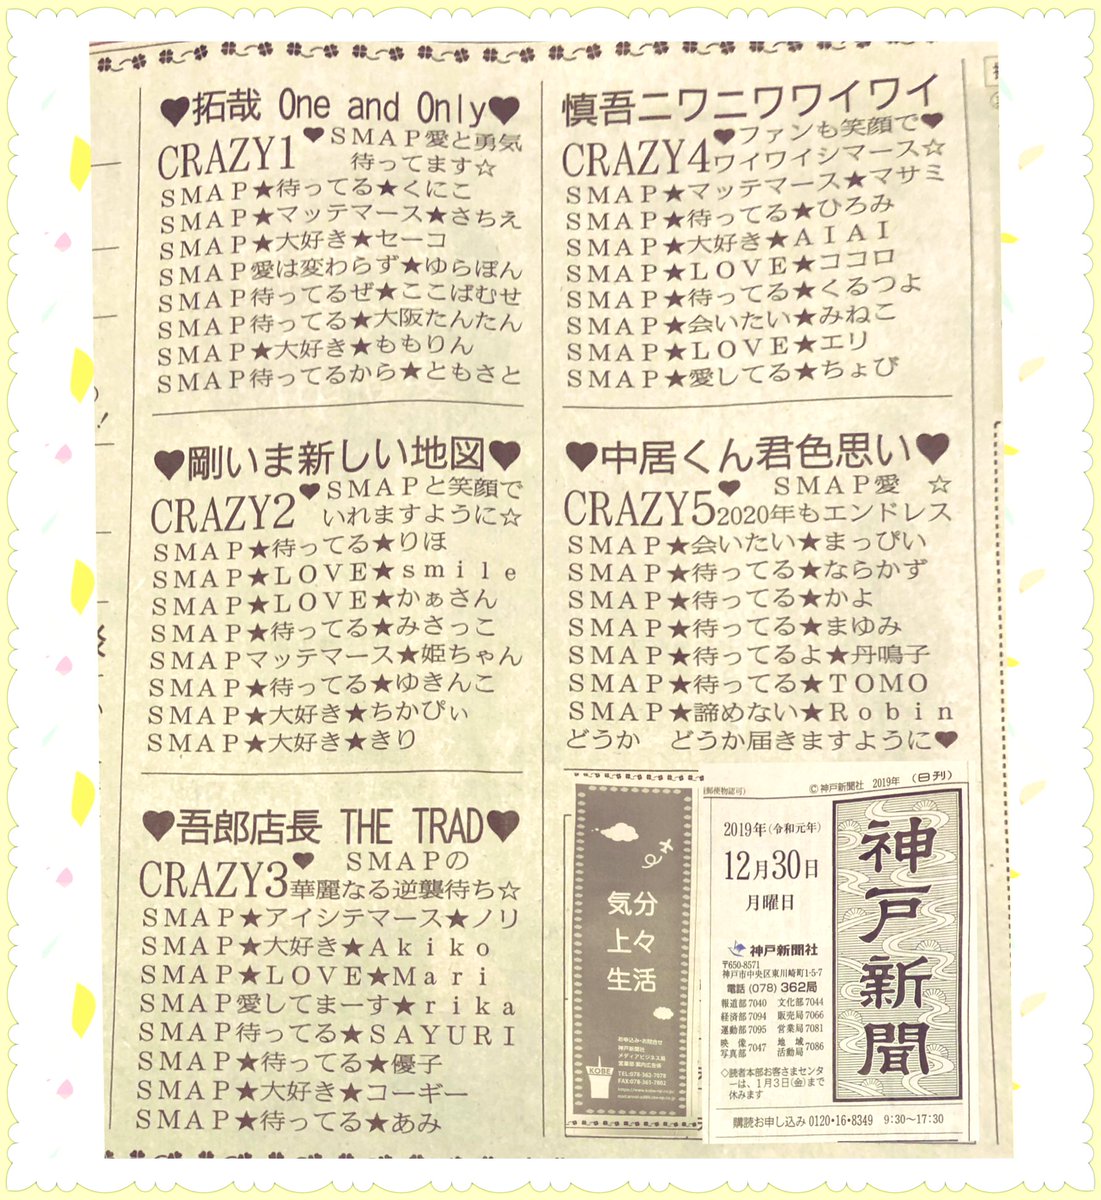 ♥拓哉 One and Only♥
CRAZY1♥SMAP愛と勇気
待ってます☆
SMAP★待ってる★くにこ
SMAP★マッテマース★さちえ
SMAP★大好き★セーコ
SMAP愛は変わらず★ゆらぽん
SMAP待ってるぜ★ここぱむせ
SMAP待ってる★大阪たんたん
SMAP★大好き★ももりん
SMAP待ってるから★ともさと
♥剛いま新しい地図♥
CRAZY2♥SMAPと笑顔で
いれますように☆
SMAP★待ってる★りほ
SMAP★LOVE★smile
SMAP★LOVE★かぁさん
SMAP★待ってる★みさっこ
SMAPマッテマース★姫ちゃん
SMAP★待ってる★ゆきんこ
SMAP★大好き★ちかぴぃ
SMAP★大好き★きり
♥吾郎店長 THE TRAD♥
CRAZY3♥SMAPの
華麗なる逆襲待ち☆
SMAP★アイシテマース★ノリ
SMAP★大好き★Akiko
SMAP★LOVE★Mari
SMAP愛してまーす★rika
SMAP待ってる★SAYURI
SMAP★待ってる★優子
SMAP★大好き★コーギー
SMAP★待ってる★あみ
慎吾ニワニワワイワイ
CRAZY4♥ファンも笑顔で♥
ワイワイシマース☆
SMAP★マッテマース★マサミ
SMAP★待ってる★ひろみ
SMAP★大好き★AIAI
SMAP★LOVE★ココロ
SMAP★待ってる★くるつよ
SMAP★会いたい★みねこ
SMAP★LOVE★エリ
SMAP★愛してる★ちょび
♥中居くん君色思い♥
CRAZY5♥SMAP愛 ☆
2020年もエンドレス
SMAP★会いたい★まっぴい
SMAP★待ってる★ならかず
SMAP★待ってる★かよ
SMAP★待ってる★まゆみ
SMAP★待ってるよ★丹鳴子
SMAP★待ってる★TOMO
SMAP★諦めない★Robin
どうか どうか届きますように♥
気分
上々
生活
お申込み・お問合せ
神戸新聞社
メディアビジネス局
営業部 案内広告係
TEL:078-362-7078
KOBE
郵便物認可)
©神戸新聞社 2019年 (日刊)
2019年(令和元年)
12月30日
月曜日
神戸新聞
神戸新聞社
〒650-8571
神戸市中央区東川崎町1-5-7
電話(078)362局
報道部7040 文化部7044
経済部7094 販売局7066
運動部7095 営業局7081
映像写真部7047 地域活動局7086
◇読者本部お客さまセンタ
ーは、1月3日(金)まで
休みます
購読お申し込み 0120・16・8349 9:30〜17:30